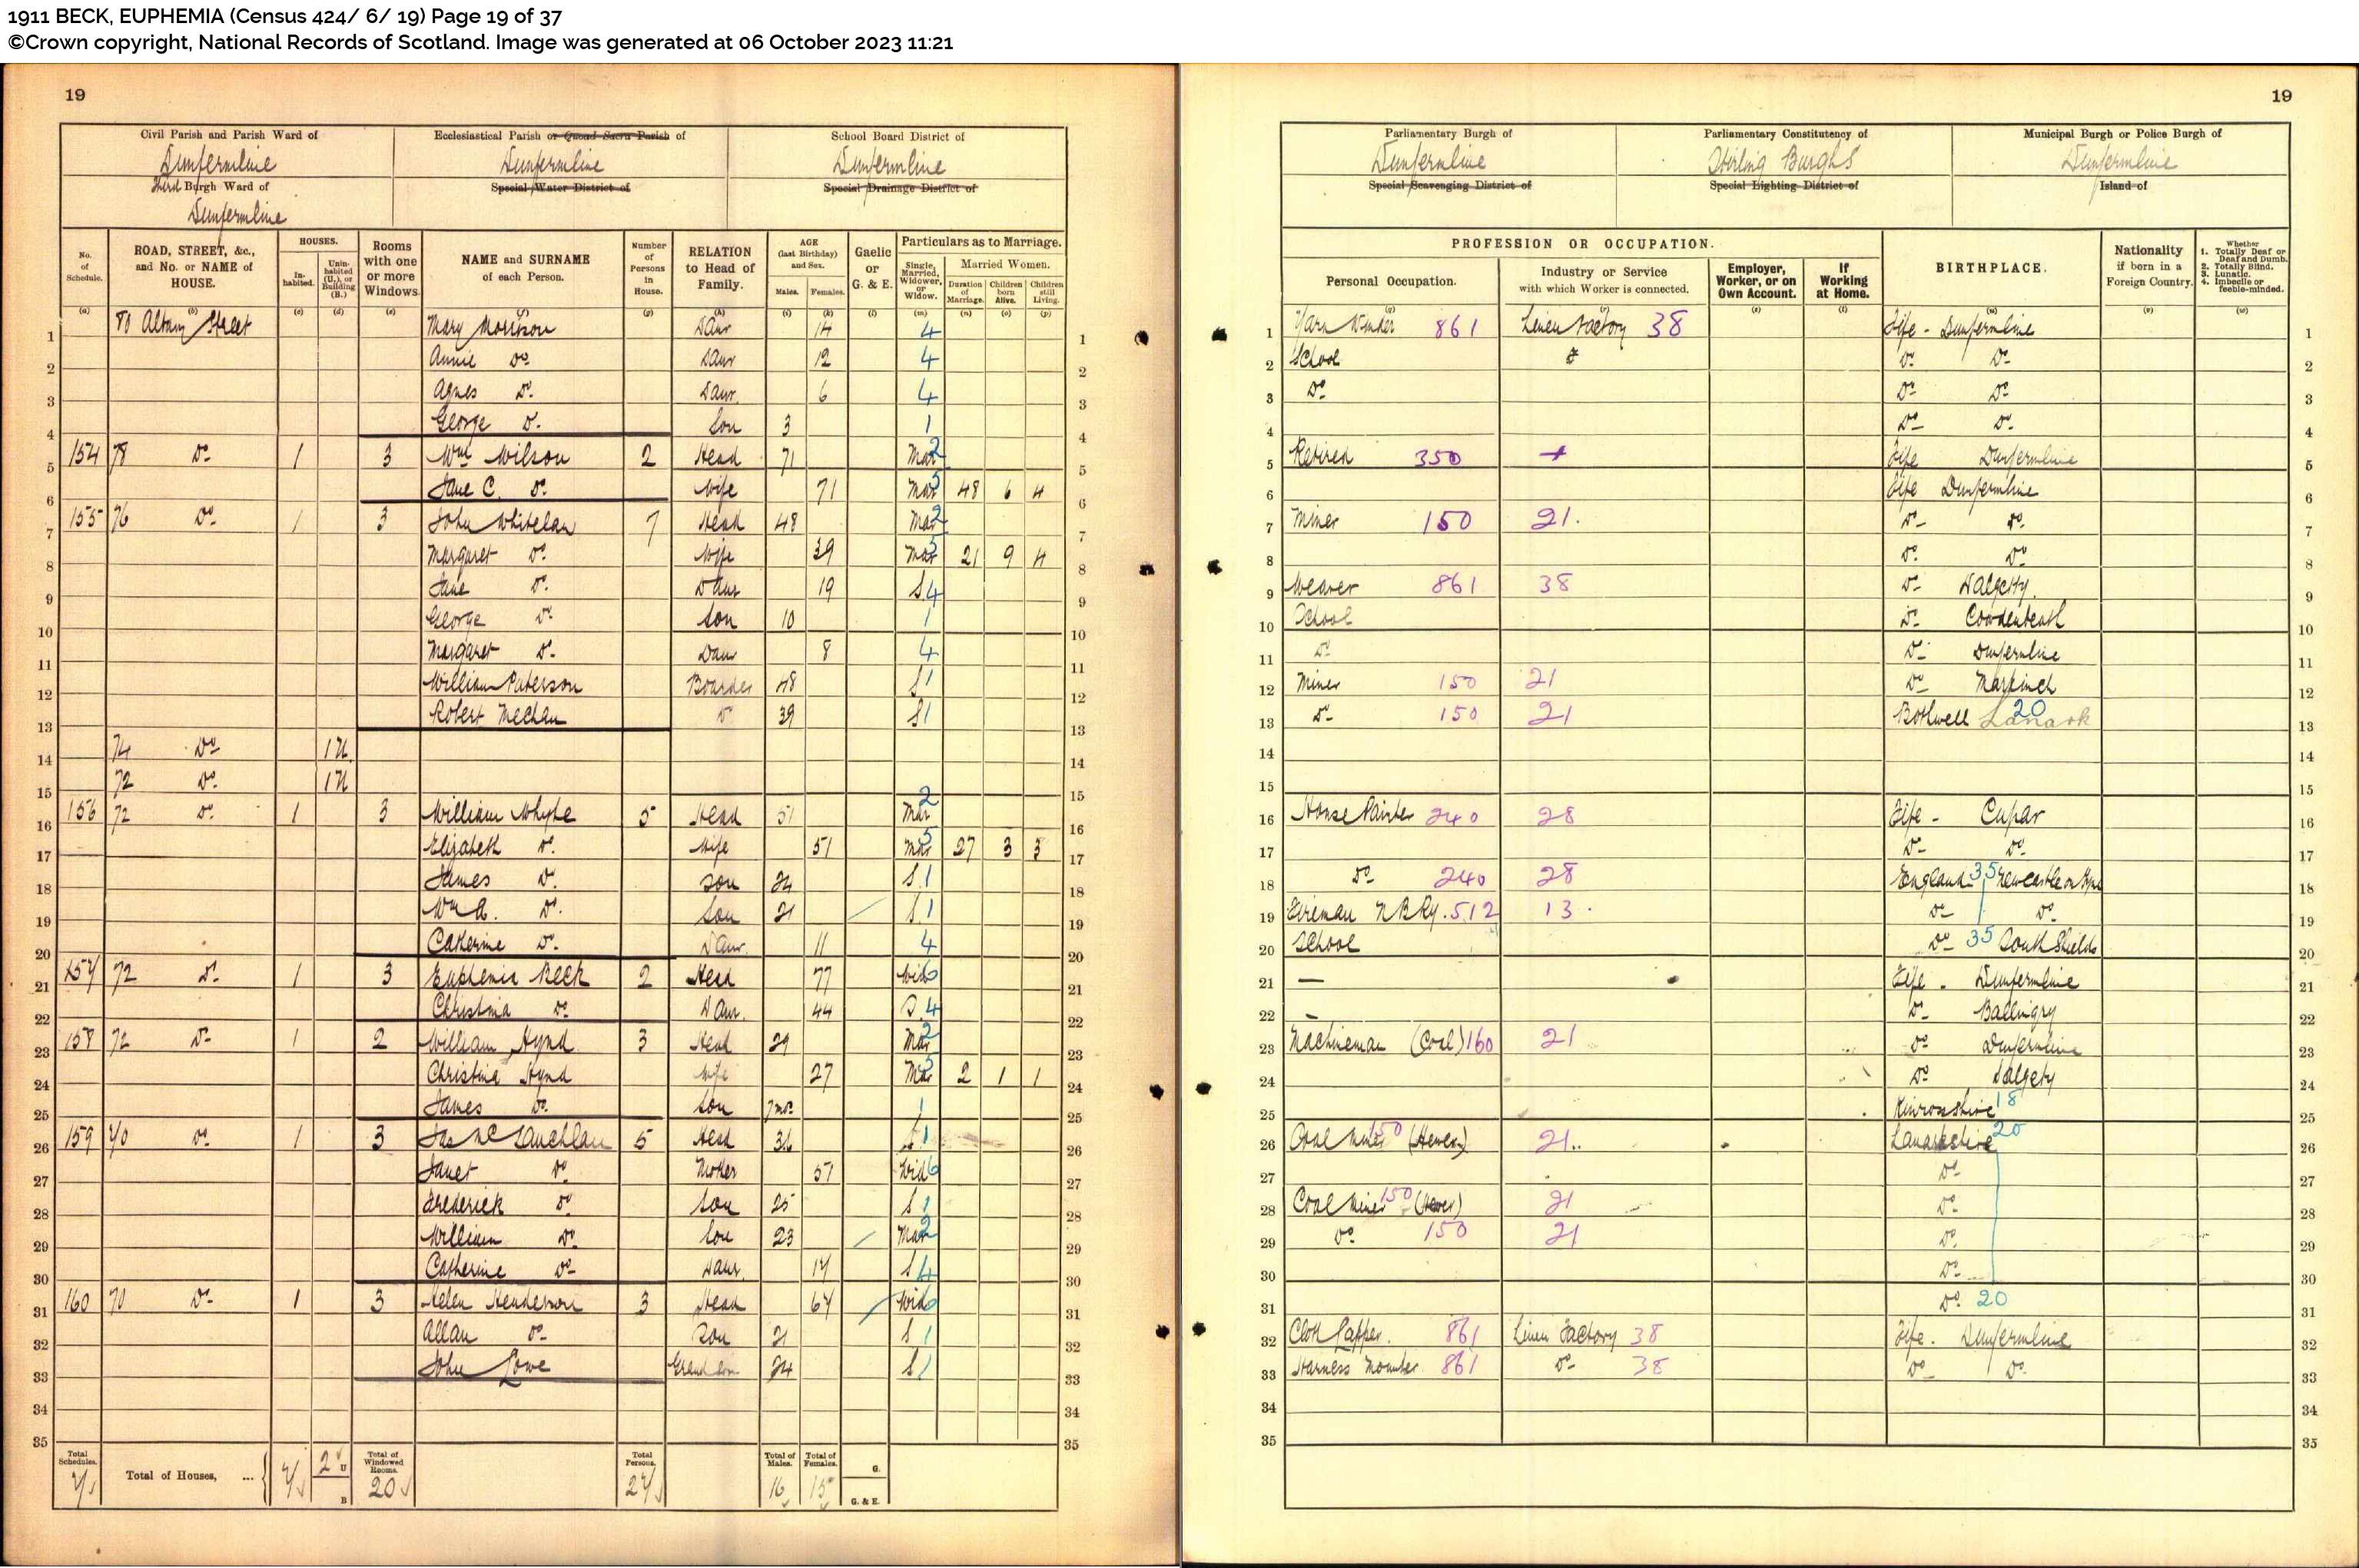 1911 BECK, EUPHEMIA (Census 424/ 6/ 19) Page 19 of 37
©Crown copyright, National Records of Scotland. Image was generated at 06 October 2023 11:21
19
Civil Parish and Parish Ward of Ecclesiastical Parish or Quoad Sacra Parish of School Board District of
Dunfermline Dunfermline Dunfermline
Third Burgh Ward of Special Water District of Special Drainage District of
Dunfermline
No. of Schedule. ROAD, STREET, &c., and No. or NAME of HOUSE. HOUSES. Inhabited. Uninhabited (U.), or Building (B.) Rooms with one or more Windows NAME and SURNAME of each Person. Number of Persons in House. RELATION to Head of Family. AGE (last Birthday) and Sex. Males. Females. Gaelic or G. & E. Particulars as to Marriage. Single, Married, Widower, or Widow. Married Women. Duration of Marriage. Children born Alive. Children still Living.
(a) (b) (c) (d) (e) (g) (h) (i) (k) (l) (m) (n) (o) (p)
1 80 Albany Street Mary Morrison Daur 14 4 1
2 Annie Do. Daur 12 4 2
3 Agnes Do. Daur. 6 4 3
4 George Do. Son 3 1 4
5 154 78 Do. 1 3 Wm Wilson 2 Head 71 Mar 2 5
6 Jane C. Do. Wife 71 Mar 5 48 6 4 6
7 155 76 Do. 1 3 John Whitelaw 7 Head 48 Mar 2 7
8 Margaret Do. Wife 39 Mar 5 21 9 4 8
9 Jane Do. Daur 19 S 4 9
10 George Do. Son 10 1 10
11 Margaret Do. Daur 8 4 11
12 William Paterson Boarder 48 S 1 12
13 Robert Mechan Do 39 S 1 13
14 74 Do. 1 U. 14
15 72 Do. 1 U 15
16 156 72 Do. 1 3 William Whyte 5 Head 51 Mar 2 16
17 Elizabeth Do. Wife 51 Mar 5 27 3 3 17
18 James Do. Son 24 S. 1 18
19 Wm Do. Son 21 S. 1 19
20 Catherine Do. Daur. 11 4 20
21 157 72 Do. 1 3 Euphemia Beck 2 Head 77 Wid 6 21
22 Christina Do. Daur. 44 S. 4 22
23 158 72 Do. 1 2 William Hynd 3 Head 29 Mar 2 23
24 Christina Hynd Wife 27 Mar 5 2 1 1 24
25 James Do. Son 7 mos. 1 25
26 159 70 Do. 1 3 Jas McLauchlan 5 Head 36 S 1 26
27 Janet Do. Mother 57 Wid 6 27
28 Frederick Do. Son 25 S 1 28
29 William Do. Son 23 Mar 2 29
30 Catherine Do. Daur. 17 S 4 30
31 160 70 Do. 1 3 Helen Henderson 3 Head 67 Wid 6 31
32 Allan Do. Son 21 S 1 32
33 John Lowe Grand son 24 S 1 33
34 34
35 35
Total Schedules. 7 Total of Houses, ... 7 2 U B Total of Windowed Rooms. 20 Total Persons. 27 Total of Males. 16 Total of Females. 15 G. G. & E.
19
Parliamentary Burgh of Parliamentary Constitutency of Municipal Burgh or Police Burgh of
Dunfermline Stirling Burghs Dunfermline
Special Scavenging District of Special Lighting District of Island of
PROFESSION OR OCCUPATION. Personal Occupation. Industry or Service with which Worker is connected. Employer, Worker, or on Own Account. If Working at Home. BIRTHPLACE. Nationality if born in a Foreign Country. Whether 1. Totally Deaf or Deaf and Dumb. 2. Totally Blind. 3. Lunatic. 4. Imbecile or feeble-minded.
(q) (r) (s) (t) (u) (v) (w)
1 Yarn Winder 861 Linen Factory 38 Fife - Dunfermline 1
2 School Do. Do. 2
3 Do. Do. Do. 3
4 Do. Do. 4
5 Retired 350 Fife Dunfermline 5
6 Fife Dunfermline 6
7 Miner 150 21. Do. Do. 7
8 Do. Do. 8
9 Weaver 861 38 Do. Dalgety. 9
10 School Do. Cowdenbeath 10
11 Do. Do. Dunfermline 11
12 Miner 150 21 Do. Markinch 12
13 Do. 150 21 Bothwell Lanark 20 13
14 14
15 15
16 House Painter 240 28 Fife - Cupar 16
17 Do. Do. 17
18 Do. 240 28 England 35 Newcastle on Tyne 18
19 Fireman N B Ry. 512 13. Do. Do. 19
20 School Do. 35 South Shields 20
21 — Fife. Dunfermline 21
22 — Do. Ballingry 22
23 Machineman (Coal) 160 21 Do. Dunfermline 23
24 Do. Dalgety 24
25 Kinrosshire 18 25
26 Coal Miner 150 (Hewer) 21.. Lanarkshire 20 26
27 Do. 27
28 Coal Miner 150 (Hewer) 21 Do. 28
29 Do. 150 21 Do. 29
30 Do. 30
31 Do. 20 31
32 Cloth Lapper. 861 Linen Factory 38 Fife. Dunfermline 32
33 Harness Mounter 861 Do. 38 Do. Do. 33
34 34
35 35